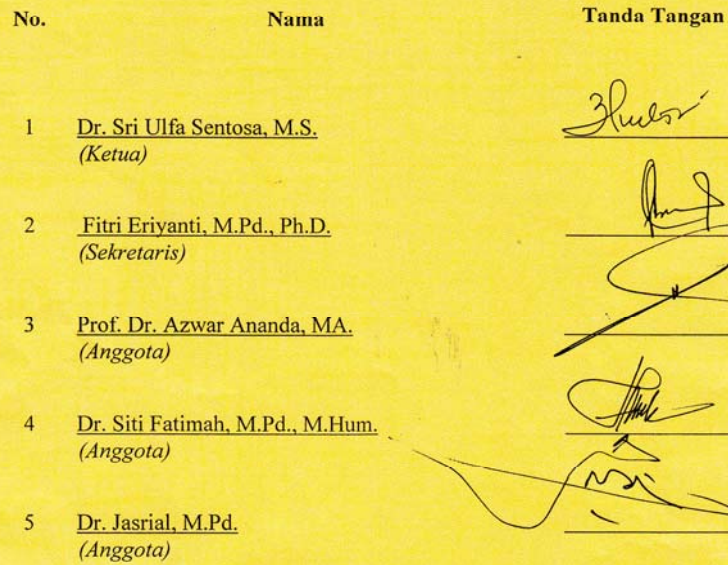 No. Nama Tanda Tangan
1 Dr. Sri Ulfa Sentosa, M.S.
(Ketua)
2 Fitri Eriyanti, M.Pd., Ph.D.
(Sekretaris)
3 Prof. Dr. Azwar Ananda, MA.
(Anggota)
4 Dr. Siti Fatimah, M.Pd., M.Hum.
(Anggota)
5 Dr. Jasrial, M.Pd.
(Anggota)